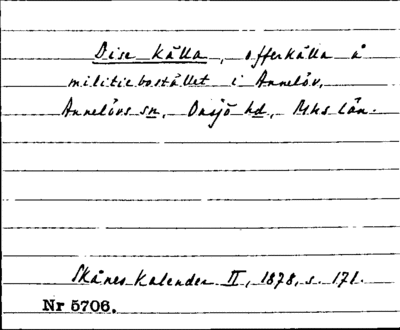 Dise källa, offerkälla å
militiebostället i Annelöv,
Annelövs sn, Onsjö hd, Mhs län.
Skånes Kalender II, 1878, s. 171.
Nr 5706.